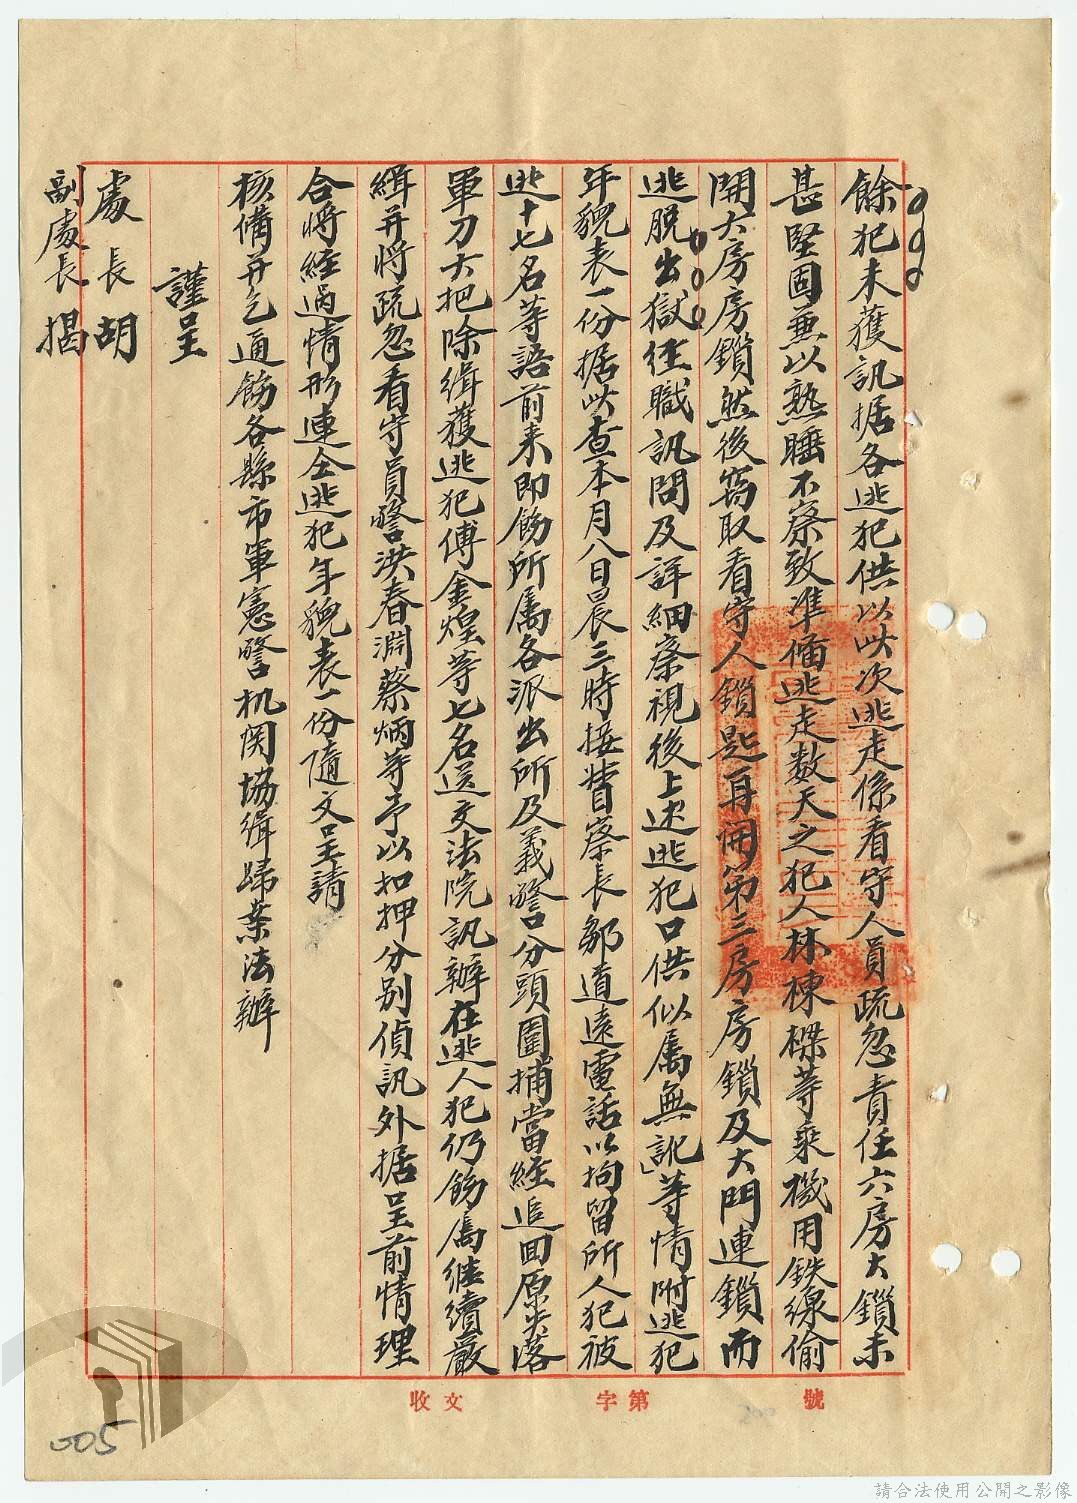 餘犯未獲訊据各逃犯供以此次逃走係看守人員疏忽責任六房大鎖未
甚堅固兼以熟睡不察致準備逃走数天之犯人林棟樑等乘機用鉄線偷
開大房房鎖然後竊取看守人鎖匙再開第三房房鎖及大門連鎖而
逃脱出獄經職訊問及詳細察視後上述逃犯口供似属無訛」等情附逃犯
年貌表一份据此查本月八日晨三時接督察長鄒道遠電話以拘留所人犯被
逃十七名等語前来即飭所属各派出所及義警分頭圍捕當經追回原失落
軍刀大把除缉獲逃犯傅金煌等七名送交法院訊辦在逃人犯仍飭属继續嚴
緝并将疏忽看守員警洪春渊蔡炳等予以扣押分别偵訊外据呈前情理
合将經過情形連仝逃犯年貌表一份隨文呈請
核備并乞通飭各縣市軍憲警机関協緝歸案法辦
謹呈
處長胡
副處長揭
收文 字第 號
005
請合法使用公開之影像